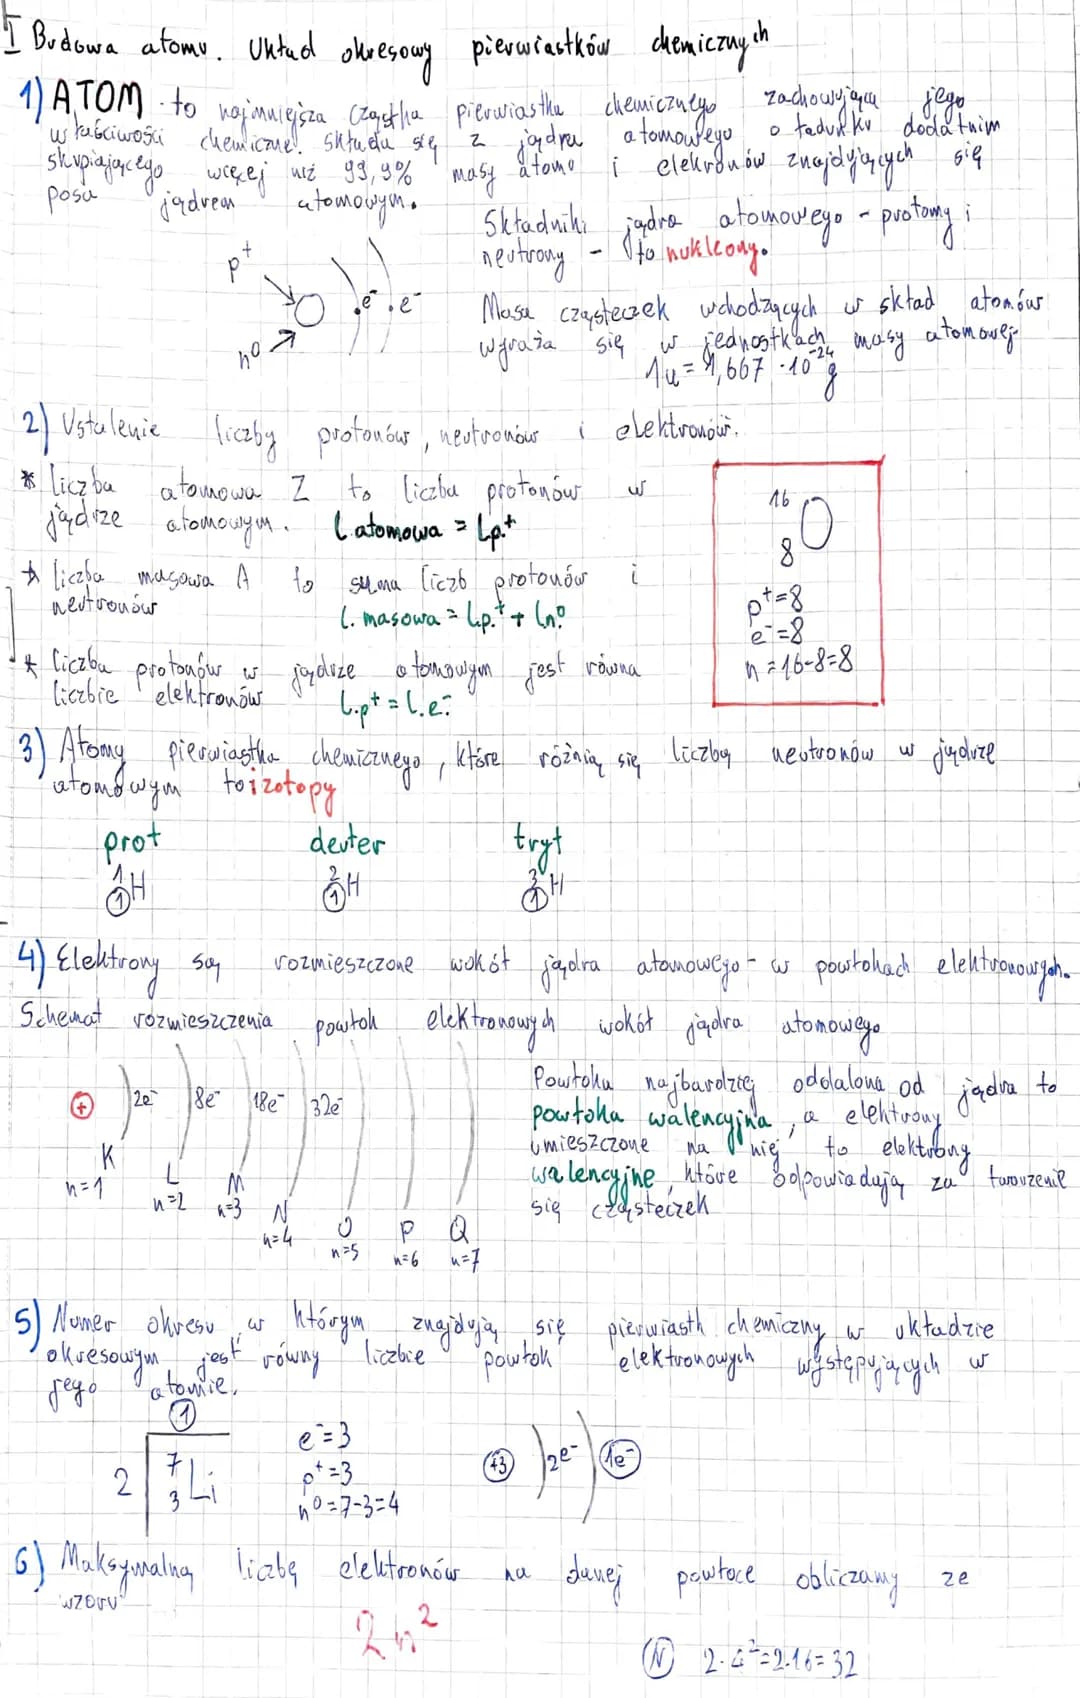 I Budowa atomu. Układ okresowy pierwiastków chemicznych
1) ATOM - to najmniejsza cząstka pierwiastka chemicznego zachowująca jego
właściwości chemiczne. Składa się z jądra atomowego o ładunku dodatnim
skupiającego więcej niż 99,9% masy atomu i elekronów znajdyjących się
posa jądrem atomowym.
Składniki jądra atomowego - protomy i
neutrony - to nukleony.
p+
e- e-
n0
Masa cząsteczek wchodzących w skład atomów
wyraża się w jednostkach masy atomowej
1u = 1,667 · 10^-24 g
2) Ustalenie liczby protonów, neutronów i elektronów.
* liczba atomowa Z to liczba protonów w
jądrze atomowym. l. atomowa = l.p.+
* liczba masowa A to suma liczb protonów i
neutronów l. masowa = l.p.+ + l.n.0
* liczba protonów w jądrze atomowym jest równa
liczbie elektronów l.p+ = l.e.-
16
O
8
p+=8
e-=8
n = 16-8=8
3) Atomy pierwiastka chemicznego, które różnią się liczbą neutronów w jądrze
atomowym to izotopy
prot deuter tryt
1 1 H 2 1 H 3 1 H
4) Elektrony są rozmieszczone wokół jądra atomowego - w powłokach elektronowych.
Schemat rozmieszczenia powłok elektronowych wokół jądra atomowego
+ 2e- 8e- 18e- 32e-
K L M N O P Q
n=1 n=2 n=3 n=4 n=5 n=6 n=7
Powłoka najbardziej oddalona od jądra to
powłoka walencyjna, a elektrony
umieszczone na niej to elektrony
walencyjne, które odpowiadają za tworzenie
się cząsteczek
5) Numer okresu w którym znajdują się pierwiastk chemiczny w układzie
okresowym jest równy liczbie powłok elektronowych występujących w
jego atomie.
1
2 7 3 Li
e-=3
p+=3
n0=7-3=4
+3 2e- 1e-
6) Maksymalną liczbę elektronów na danej powłoce obliczamy ze
wzoru
2n²
N 2·4²=2·16=32